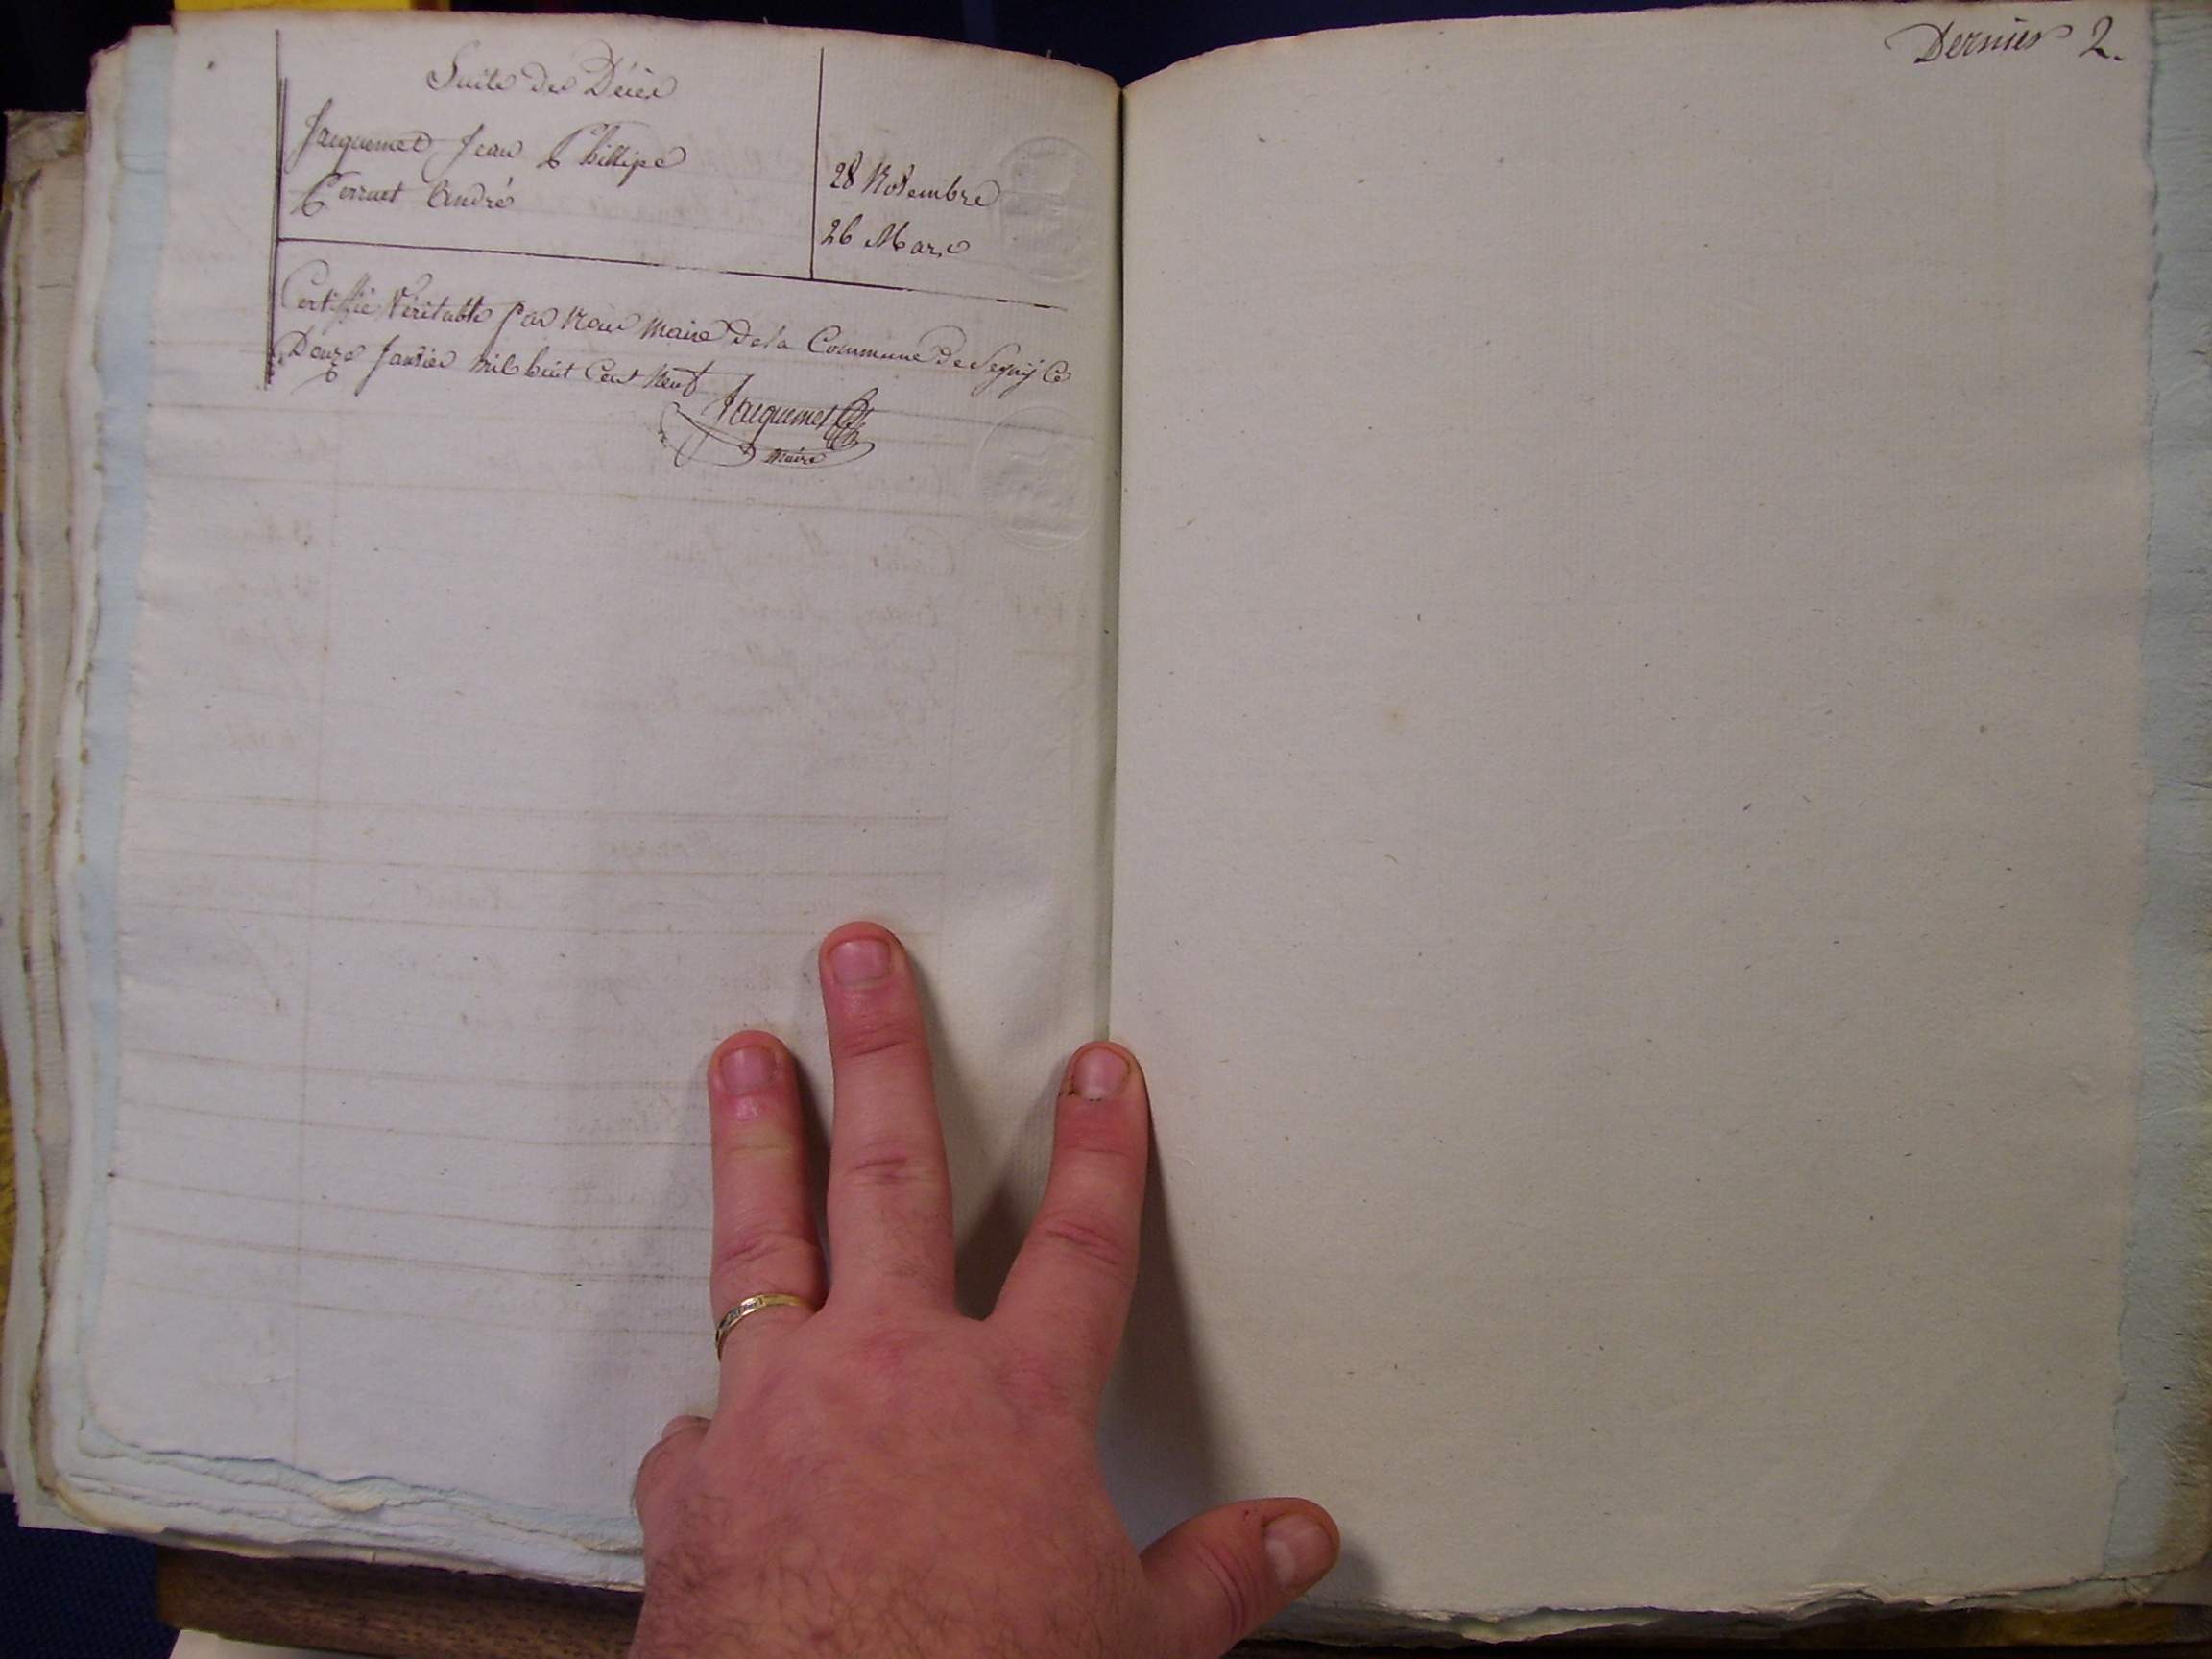 Suite des Décès
Jacquemet Jean Phillipe
28 Novembre
Perruet André
26 Mars
Certiffié Véritable par Nous Maire de la Commune de Segny Ce
Douze Janvier mil huit Cent Neuf
Jacquemet
Maire
Dernier 2.